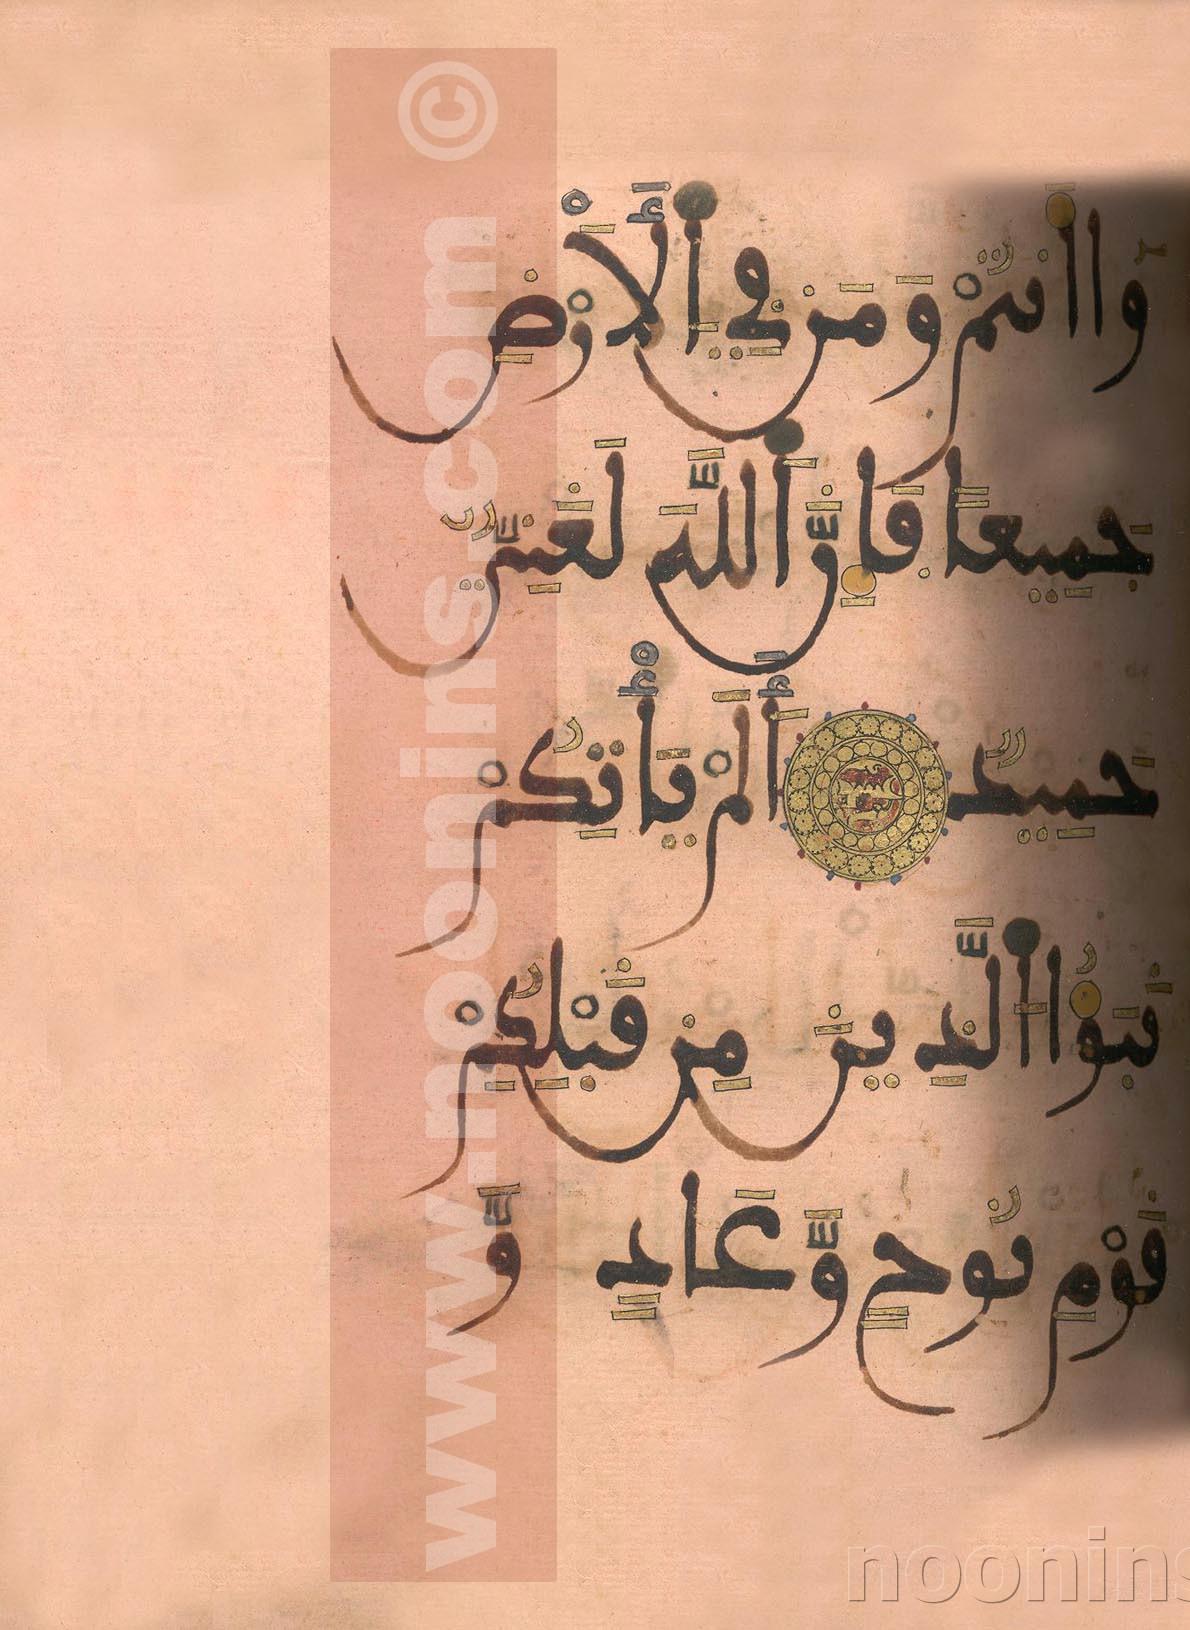 وا أنتُمْ وَمَن فِي اَ۬لْأَرْضِ
جَمِيعًا فَإِنَّ اَ۬للَّهَ لَغَنِيٌّ
حَمِيدٌ أَلَمْ يَأْتِكُمْ
نَبَؤُا اُ۬لَّذِينَ مِن قَبْلِكُمْ
قَوْمِ نُوحٍ وَّعَادٍ وَّ
www.noonins.com ©
noonins